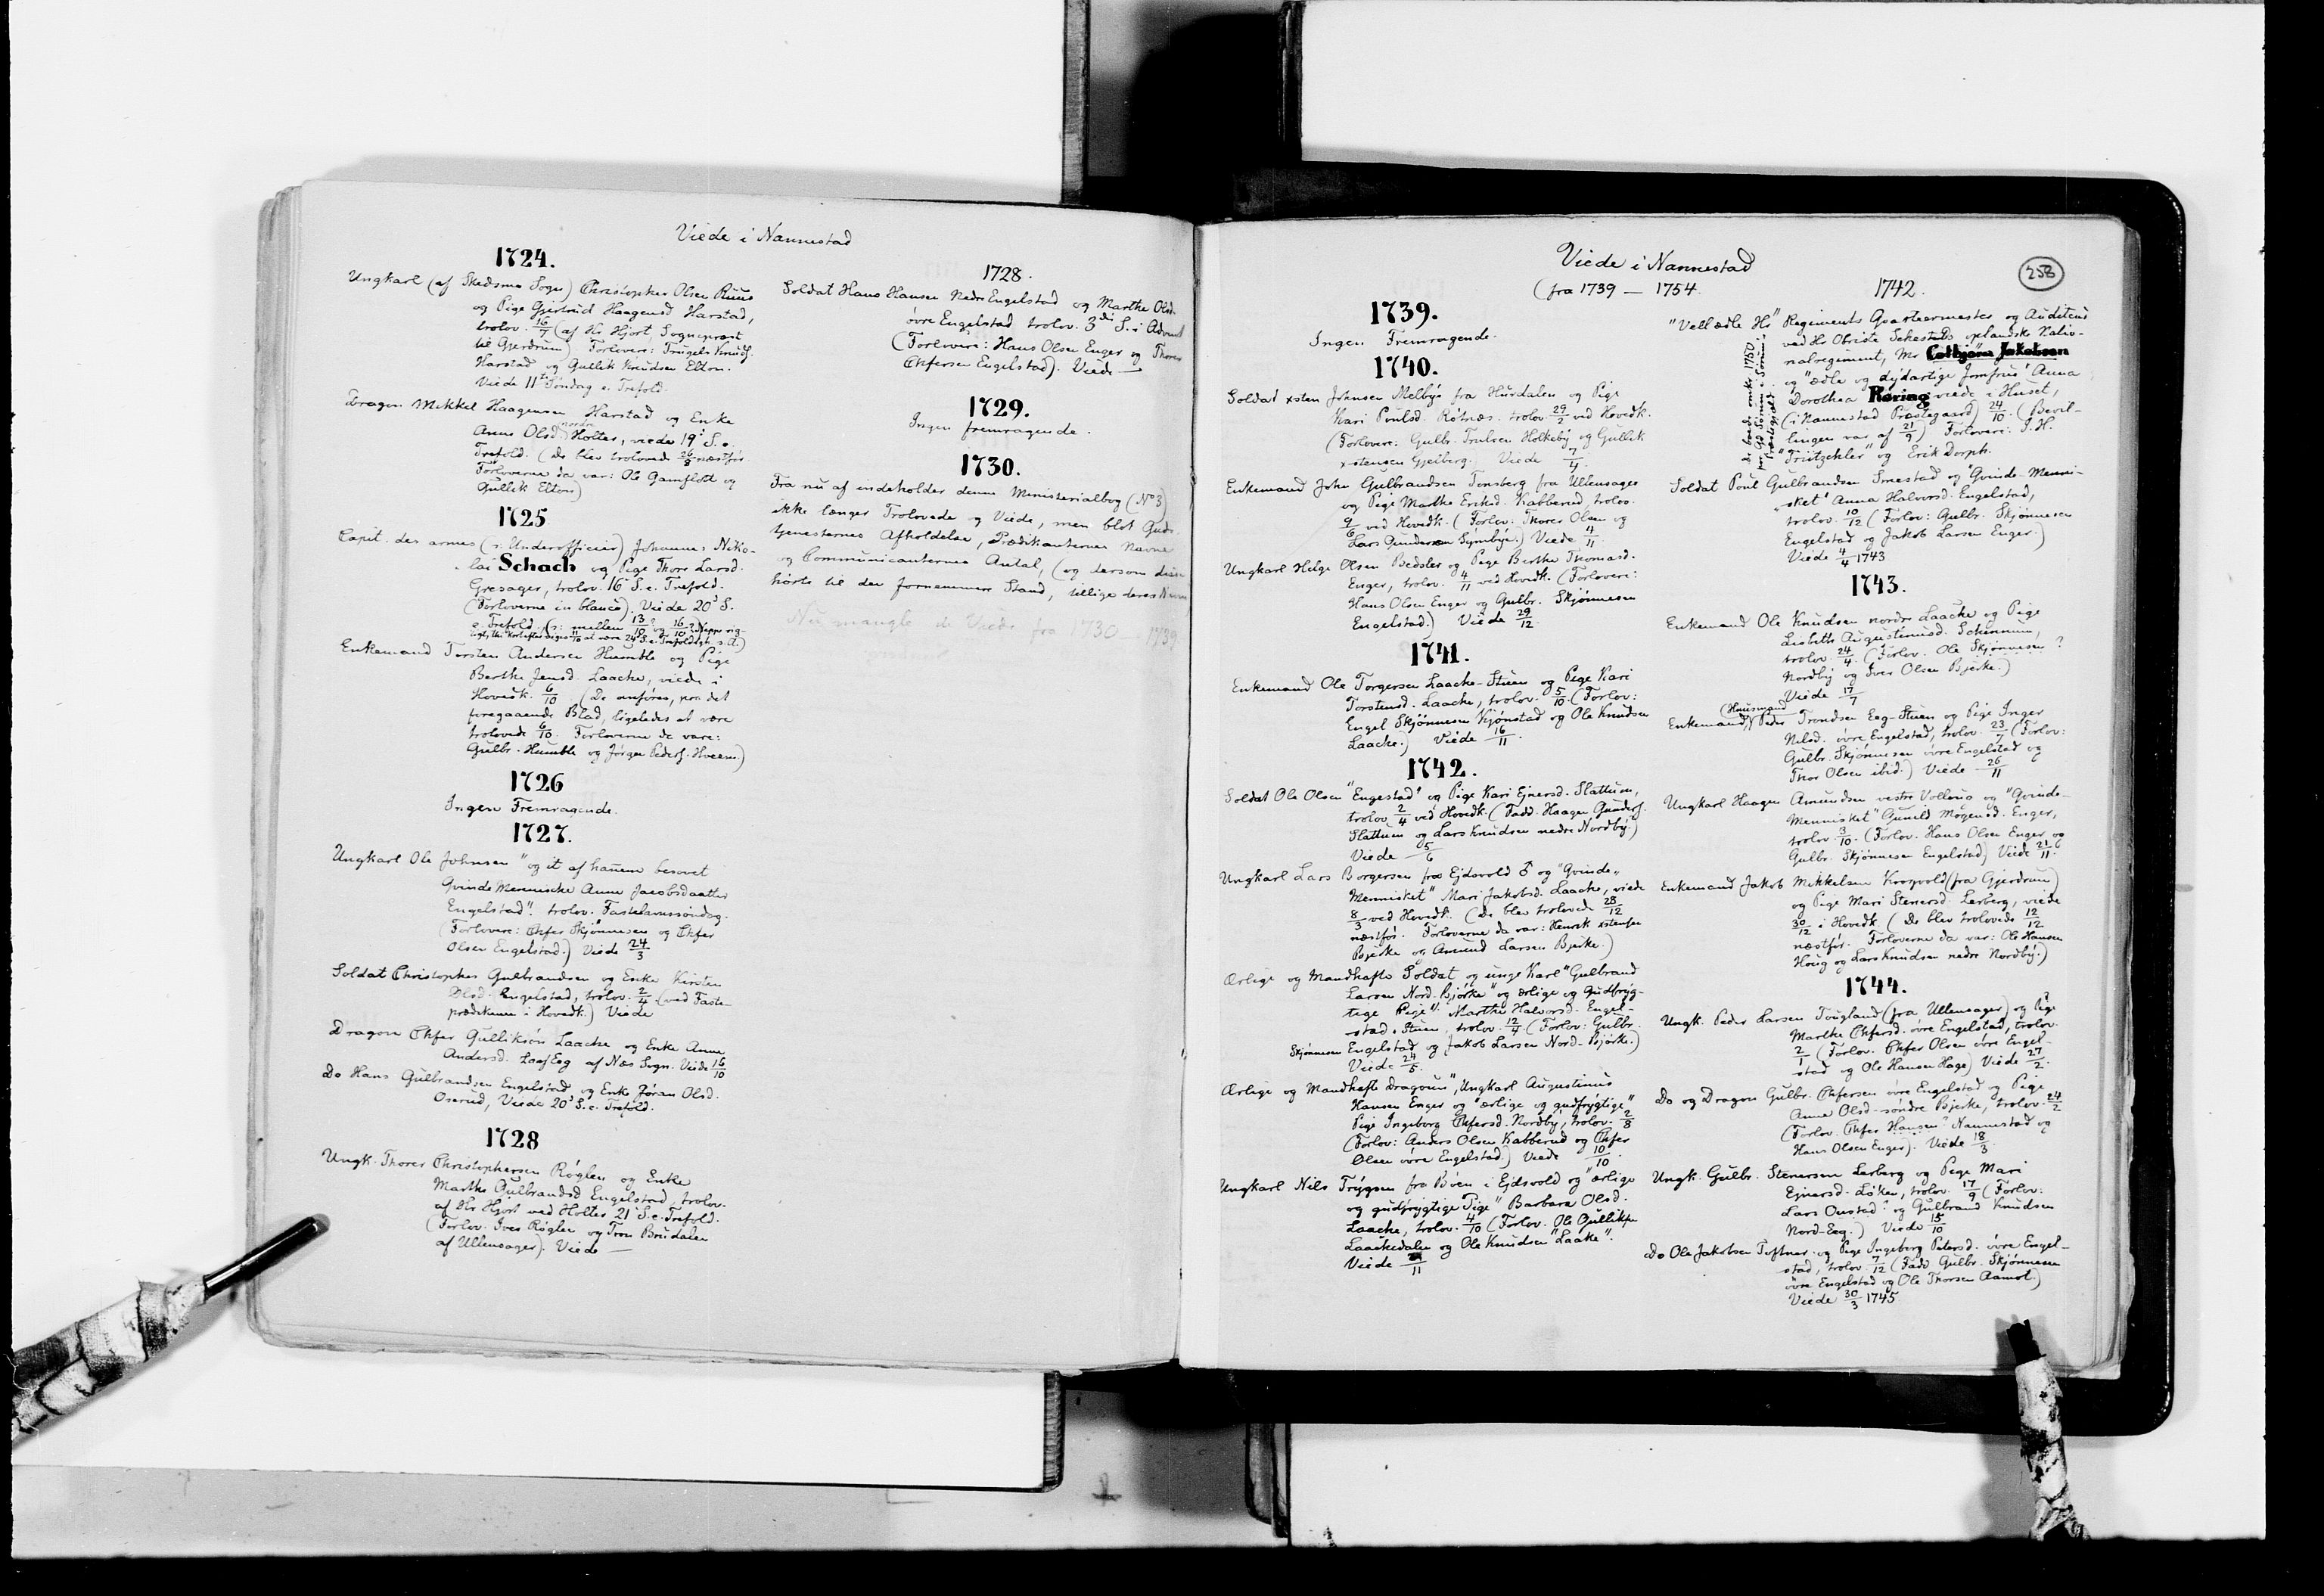 Viede i Nannestad
1724.
Ungkarl (af Skedsmo Sogn) Christopher Olsen Ruus
og Pige Gjertrud Haagensd Harstad,
trolov. 16/7 (af Hr Hjort, Sognepræst
til Gjerdrum) Forlovere: Trugels Knuds.
Harstad og Gullik Knudsen Elton.
Viede 11te Søndag e. Trefold.
Dragon Mikkel Haagensen Harstad og Enke
Anne Olsd. nordre Holter, viedes 19d S. e.
Trefold. (De blev trolovede 26/8 næstfør.
Forloverne da var: Ole Gamflott og
Gullik Elton)
1725
Capit. des armes (ɔ: Underofficier) Johannes Niko-
lai Schach og Pige Thore Larsd.
Gresager, trolov. 16d S. e. Trefold.
(Forloverne in blanco). Viede 20d S.
e. Trefold. (ɔ: mellem 13/10 og 16/10
Enkemand Torsten Andersen Humble og Pige
Berthe Jensd. Laache, viede i
Hovedk. 6/10 (De anføres, paa det
foregaaende Blad, ligeledes at være
trolovede 6/10. Forloverne da vare:
Gulbr. Humble og Jørgen Peders. Hveem.)
1726
Ingen Fremragende.
1727.
Ungkarl Ole Johnsen "og it af hannem besovet
Qvinde Menniske Anne Jacobsdaatter
Engelstad". trolov. Fastelavnssøndag.
(Forlovere: Chfer Skjønnesen og Chfer
Olsen Engelstad.) Viede 24/3
Soldat Christopher Gulbrandsen og Enke Kirsten
Olsd. Engelstad, trolov. 2/4 (ved Faste-
prædikenen i Hovedk.) Viede
Dragon Chfer Gulliksøn Laache og Enke Anne
Andersd. Laaj Eeg af Næs Sogn. Viede 16/10
Do Hans Gulbrandsen Engelstad og Enke Jøran Olsd.
Osrud, Viede 20d S. e. Trefold.
1728
Ungk. Thorer Christophersen Røglen og Enke
Marthe Gulbrandsd Engelstad, trolov.
af Hr Hjort ved Holter 21d S. e. Trefold.
(Forlov. Iver Røglen og Tron Brudalen
af Ullensager). Viede —
1728.
Soldat Hans Hansen Nedre Engelstad og Marthe Olsd.
øvre Engelstad trolov. 3die S. i Advent
(Forlovere: Hans Olsen Enger og Thorer
Chfersen Engelstad). Viede —
1729.
Ingen fremragende.
1730.
Fra nu af indeholder denne Ministerialbog (No 3)
ikke længer Trolovede og Viede, men blot Guds-
tjenesternes Afholdelse, Prædikanternes Navne
og Communicanternes Antal, (og dersom disse
hørte til den fornemmere Stand, tillige deres Navne
Nu mangle de Viede fra 1730 – 1739
Viede i Nannestad
(fra 1739 — 1754.
258
1739.
Ingen Fremragende.
1740.
Soldat xsten Johnsen Melbye fra Hurdalen og Pige
Kari Poulsd. Røtnæs. trolov. 29/2 ved Hovedk.
(Forlovere: Gulbr. Trulsen Holkeby og Gullik
xstensen Gjelberg.) Viede 7/4.
Enkemand John Gulbrandsen Tonsberg fra Ullensager
og Pige Marthe Eriksd. Kabberud trolov.
9/6 ved Hovedk. (Forlov: Thorer Olsen og
Lars Gundersen Symbye.) Viede 4/11
Ungkarl Helge Olsen Bedsler og Pige Berthe Thomasd.
Enger, trolov. 4/11 ved Hovedk. (Forlovere:
Hans Olsen Enger og Gulbr. Skjønnesen
Engelstad.) Viede 29/12.
1741.
Enkemand Ole Torgersen Laache-Stuen og Pige Kari
Torstensd. Laache, trolov. 5/10. (Forlov:
Engel Skjønnesen Kjønstad og Ole Knudsen
Laache.) Viede 16/11.
1742.
Soldat Ole Olsen "Engestad" og Pige Kari Ejnersd. Slattum,
trolov. 2/4 ved Hovedk. (Fadd. Haagen Gunders.
Slattum og Lars Knudsen nedre Nordby.)
Viede 5/6
Ungkarl Lars Borgersen fra Ejdsvold og "Qvinde-
Mennisket" Mari Jakobsd. Laache, viede
8/3 ved Hovedk. (De blev trolovede 28/12
næstfør. Forloverne da var: Henrik xstensen
Bjerke og Amund Larsen Bjerke.)
Ærlige og Mandhafte Soldat og unge Karl "Gulbrand
Larsen Nord-Bjørke" og ærlige og Gudfryg-
tige Pige" Marthe Halvorsd. Engel-
stad-Stuen, trolov. 12/4 (Forlov: Gulbr.
Skjønnesen Engelstad og Jakob Larsen Nord-Bjørke.)
Viede 24/5.
Ærlige og Mandhafte Dragoun", Ungkarl Augustinus
Hansen Enger og "ærlige og gudfrygtige"
Pige Ingeborg Chfersd. Nordby, trolov. 2/8
(Forlov: Anders Olsen Kabberud og Chfer
Olsen øvre Engelstad.) Viede 10/10.
Ungkarl Nils Trygsen fra Bøen i Ejdsvold og "ærlige
og gudfrygtige Pige" Barbara Olsd.
Laache, trolov. 4/10 (Forlov. Ole Gulliksen
Laachedalen og Ole Knudsen "Laake".
Viede /11
1742.
"Vell ædle Hr" Regiments Qvarteermester og Auditeur
ved Hr Obriste Sekesteds oplandske Natio-
nalregiment, Mr Cathjøren Jakobsen
og "ædle og dydartige Jomfrue" Anna
Dorothea Røring viede i Huset,
(i Nannestad Prestegaard) 24/10. (Bevil-
lingen var af 21/9) Forlovere: J. H.
"Triitzchler" og Erik Dorph.
De boede omkr 1750
paa Gd Sønnum i Sørum
Præstegjeld.
Soldat Poul Gulbrandsen Smestad og "Qvinde-Menni-
sket" Anna Halvorsd. Engelstad,
trolov. 10/12 (Forlov: Gulbr. Skjønnesen
Engelstad og Jakob Larsen Enger.)
Viede 4/4 1743
1743.
Enkemand Ole Knudsen nordre Laache og Pige
Lisbeth Augustinusd. Schinnum,
trolov. 24/4. (Forlov. Ole Skjønnesen ?
Nordby og Iver Olsen Bjerke.)
Viede 17/7
(Huusmand
Enkemand Peder Trondsen Eeg-Stuen og Pige Inger
Nilsd. øvre Engelstad, trolov. 23/7 (Forlov:
Gulbr. Skjønnesen øvre Engelstad og
Thor Olsen ibid.) Viede 26/11
Ungkarl Haagen Amundsen vestre Vollaug og "Qvinde-
Mennisket" Gunild Mogensd. Enger,
trolov. 3/10. (Forlov. Hans Olsen Enger og
Gulbr. Skjønnesen Engelstad) Viede 21/11.
Enkemand Jakob Mikkelsen Krogvold (fra Gjerdrum)
og Pige Mari Stenersd. Lerberg, viede
30/12 i Hovedk. (De blev trolovede 12/12
næstfør. Forloverne da var: Ole Hansen
Houg og Lars Knudsen nedre Nordby.)
1744.
Ungk. Peder Larsen Tougland (fra Ullensager) og Pige
Marthe Chfersd. øvre Engelstad, trolov.
2/1 (Forlov. Chfer Olsen øvre Engel-
stad og Ole Hansen Hage) Viede 27/2.
Do og Dragon Gulbr. Chfersen øvre Engelstad og Pige
Anne Olsd. søndre Bjerke, trolov. 24/2
(Forlov. Chfer Hansen Nannestad og
Hans Olsen Enger). Viede 18/3.
Ungk. Gulbr. Stenersen Lerberg og Pige Mari
Ejnersd. Løken, trolov. 17/9 (Forlov:
Lars Onstad? og Gulbrand Knudsen
Nord-Eeg.) Viede 15/10
Do Ole Jakobsen Toftner og Pige Ingeborg Petersd. øvre Engel-
stad, trolov. 7/12 (Fadd. Gulbr. Skjønnesen
øvre Engelstad og Ole Thorsen Aamot.)
Viede 30/3 1745